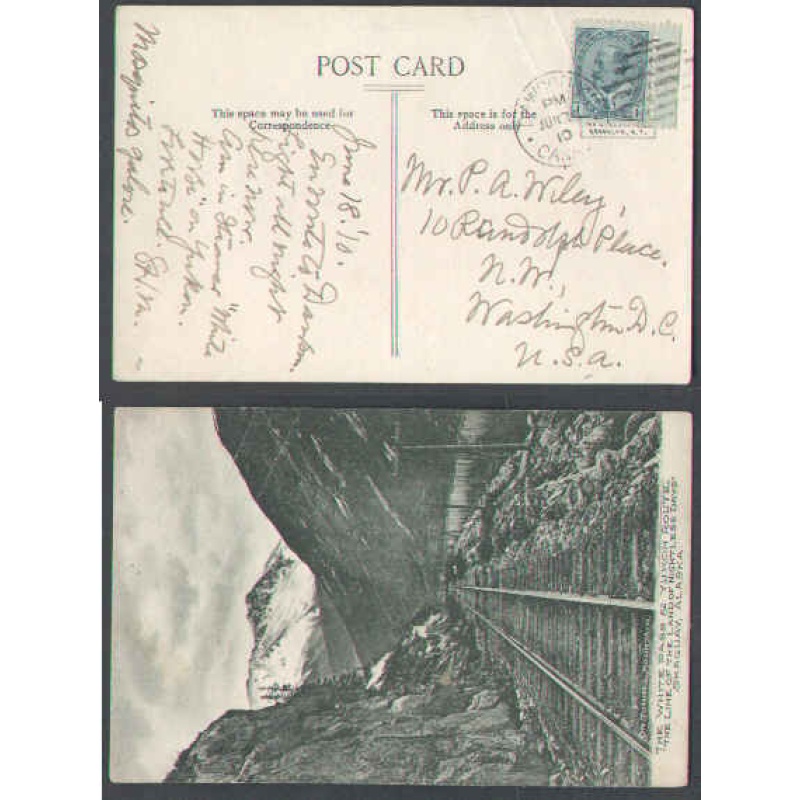 POST CARD
This space may be used for
Correspondence
This space is for the
Address only
PM
JUN
10
1
June 18.'10.
Enroute to Dawson.
Light all night
also now.
Am in Steamer "White
Horse" on Yukon.
Mosquitos galore.
Mr. P. A. Wiley,
10 Randolph Place.
N.W.,
Washington D.C.
U.S.A.
BROOKLYN, N.Y.
ON TUNNEL MOUNTAIN
THE WHITE PASS & YUKON ROUTE,
"THE LINE OF THE LAND OF NIGHTLESS DAYS"
SKAGUAY, ALASKA